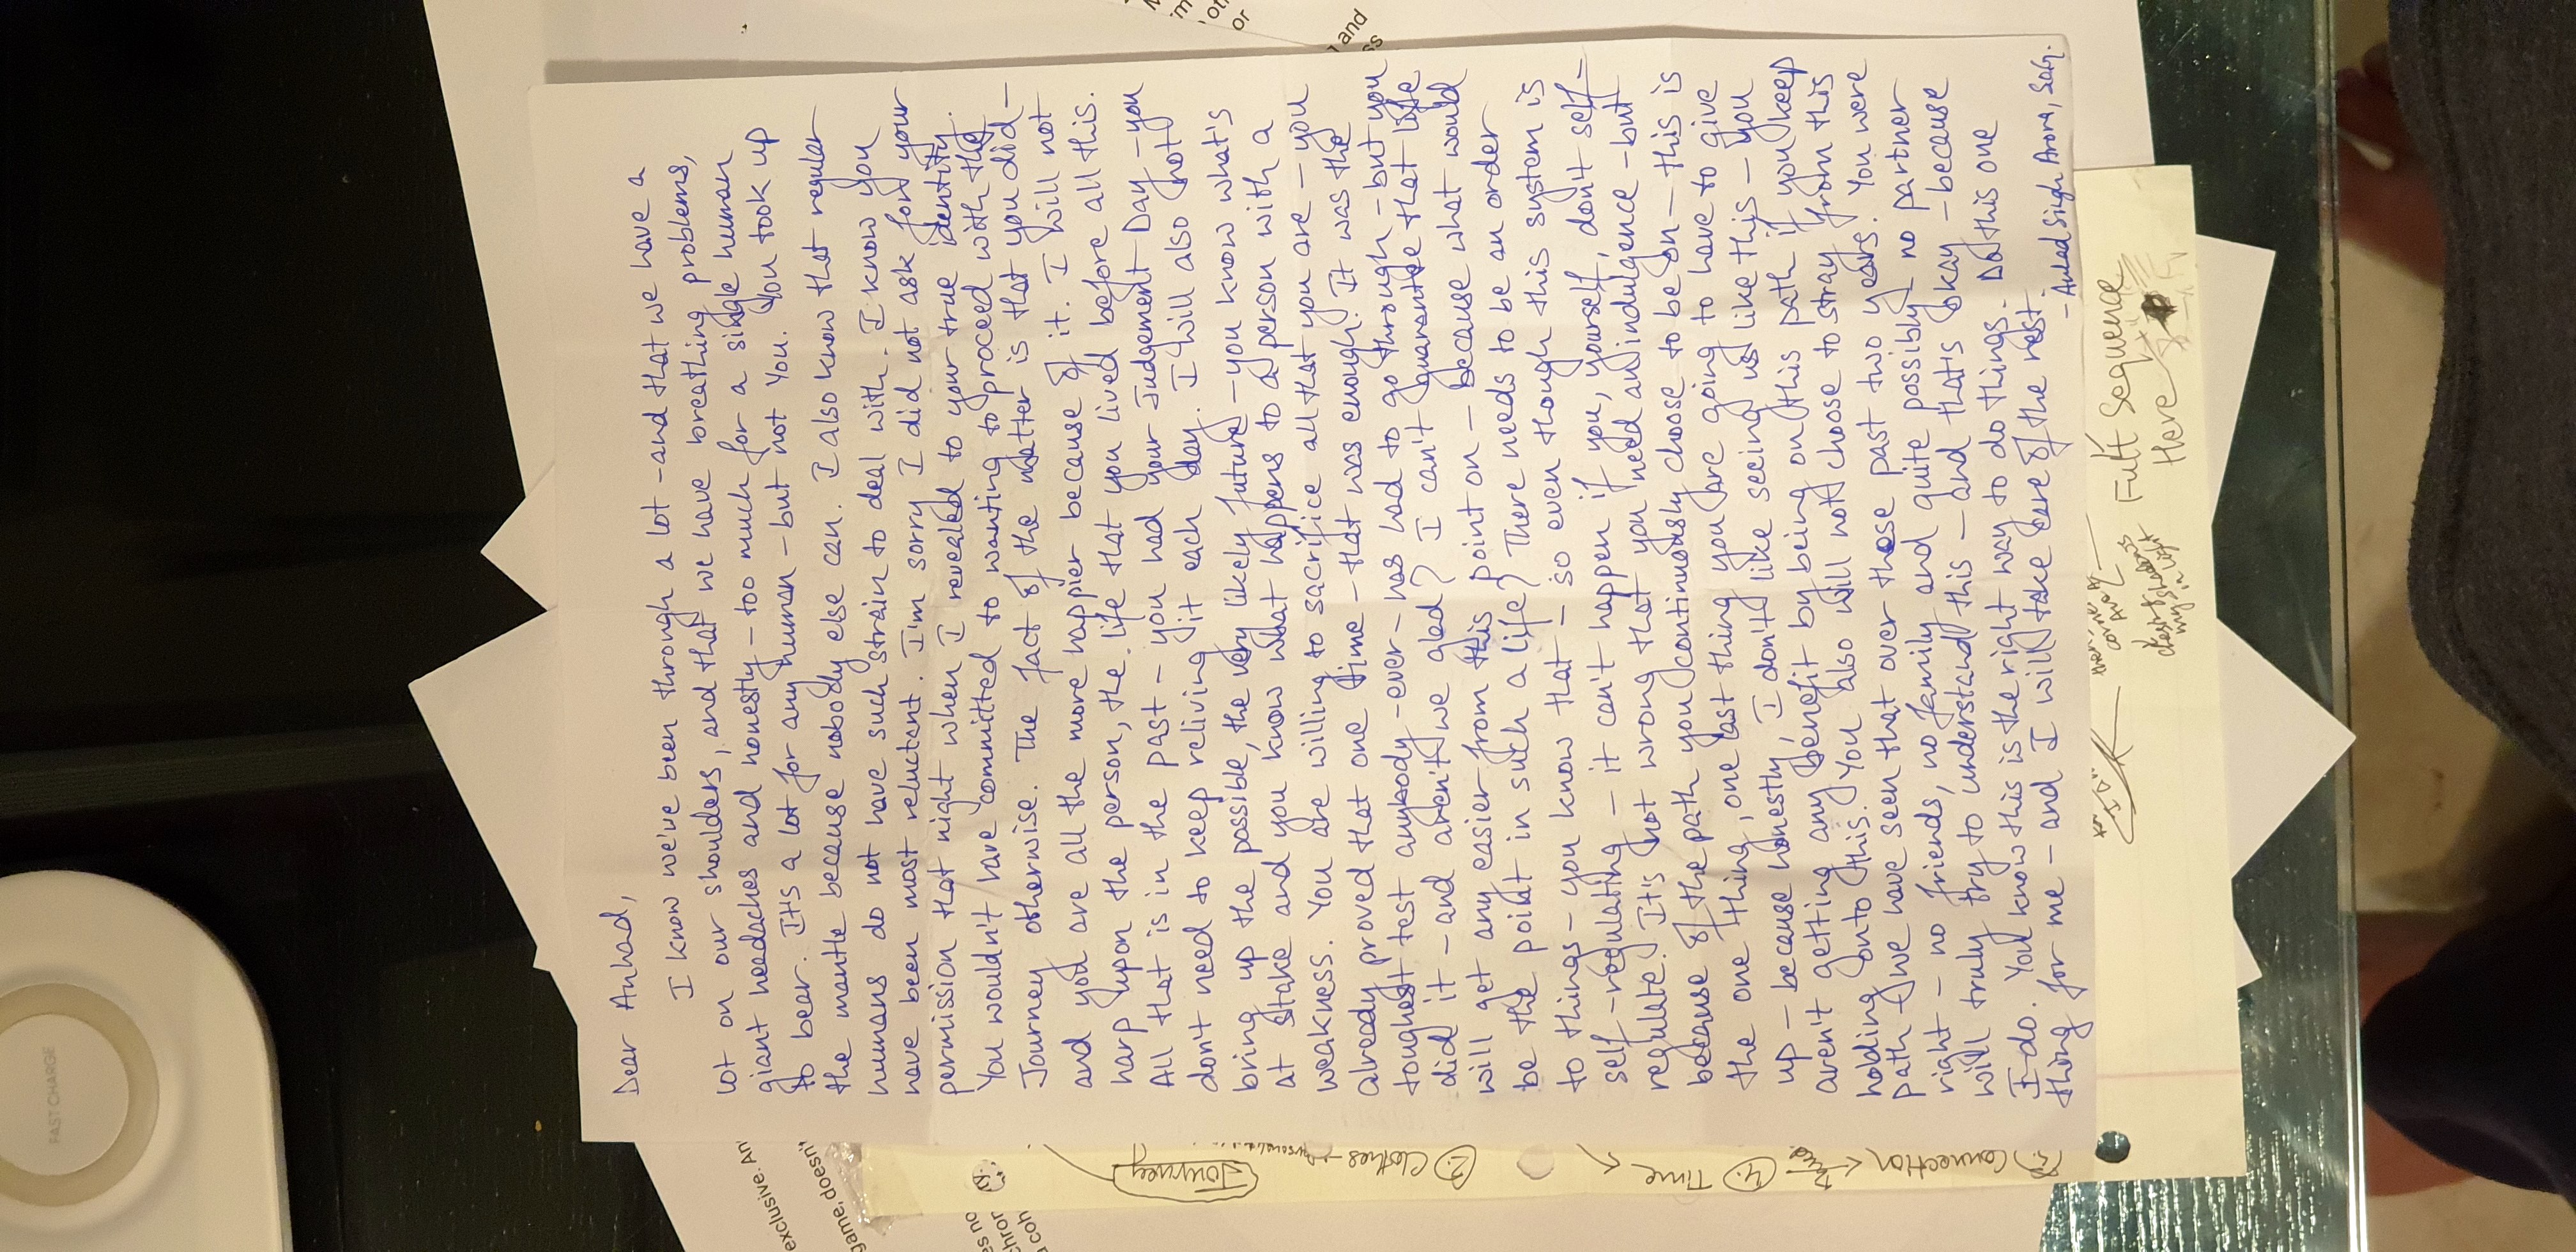 FAST CHARGE
Dear Anhad,
I know we've been through a lot – and that we have a
lot on our shoulders, and that we have breathing problems,
giant headaches and honestly – too much for a single human
to bear. It's a lot for any human – but not You. You took up
the mantle because nobody else can. I also know that regular
humans do not have such strain to deal with. I know you
have been most reluctant. I'm sorry I did not ask for your
permission that night when I revealed to your true identity.
You wouldn't have committed to wanting to proceed with the
Journey otherwise. The fact of the matter is that you did –
and you are all the more happier because of it. I will not
harp upon the person, the life that you lived before all this.
All that is in the past – you had your Judgement Day – you
don't need to keep reliving it each day. I will also not
bring up the possible, the very likely future – you know what's
at stake and you know what happens to a person with a
weakness. You are willing to sacrifice all that you are – you
already proved that one time – that was enough. It was the
toughest test anybody – ever – has had to go through – but you
did it – and aren't we glad? I can't guarantee that life
will get any easier from this point on – because what would
be the point in such a life? There needs to be an order
to things – you know that – so even though this system is
self-regulating – it can't happen if you, yourself, don't self-
regulate. It's not wrong that you need an indulgence – but
because of the path you continuously choose to be on – this is
the one thing, one last thing you are going to have to give
up – because honestly, I don't like seeing us like this – you
aren't getting any benefit by being on this path if you keep
holding onto this. You also will not choose to stray from this
path – we have seen that over these past two years. You were
right – no friends, no family and quite possibly – no partner
will truly try to understand this – and that's okay – because
I do. You know this is the right way to do things. Do this one
thing for me – and I will take care of the rest.
– Anhad Singh Arora, SoG.
exclusive. An
game, doesn't
es no
chron
a coh
Journey
2. Clothes →
4. Time
5. Connection
then
corner
Ave A
chasing
my shadows
in light
Full Sequence
Here
or
and
ss